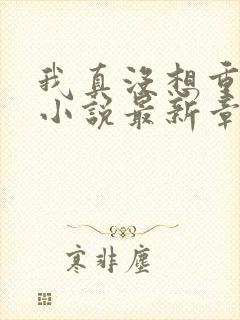 我真没想重
小说最新章
寒非尘